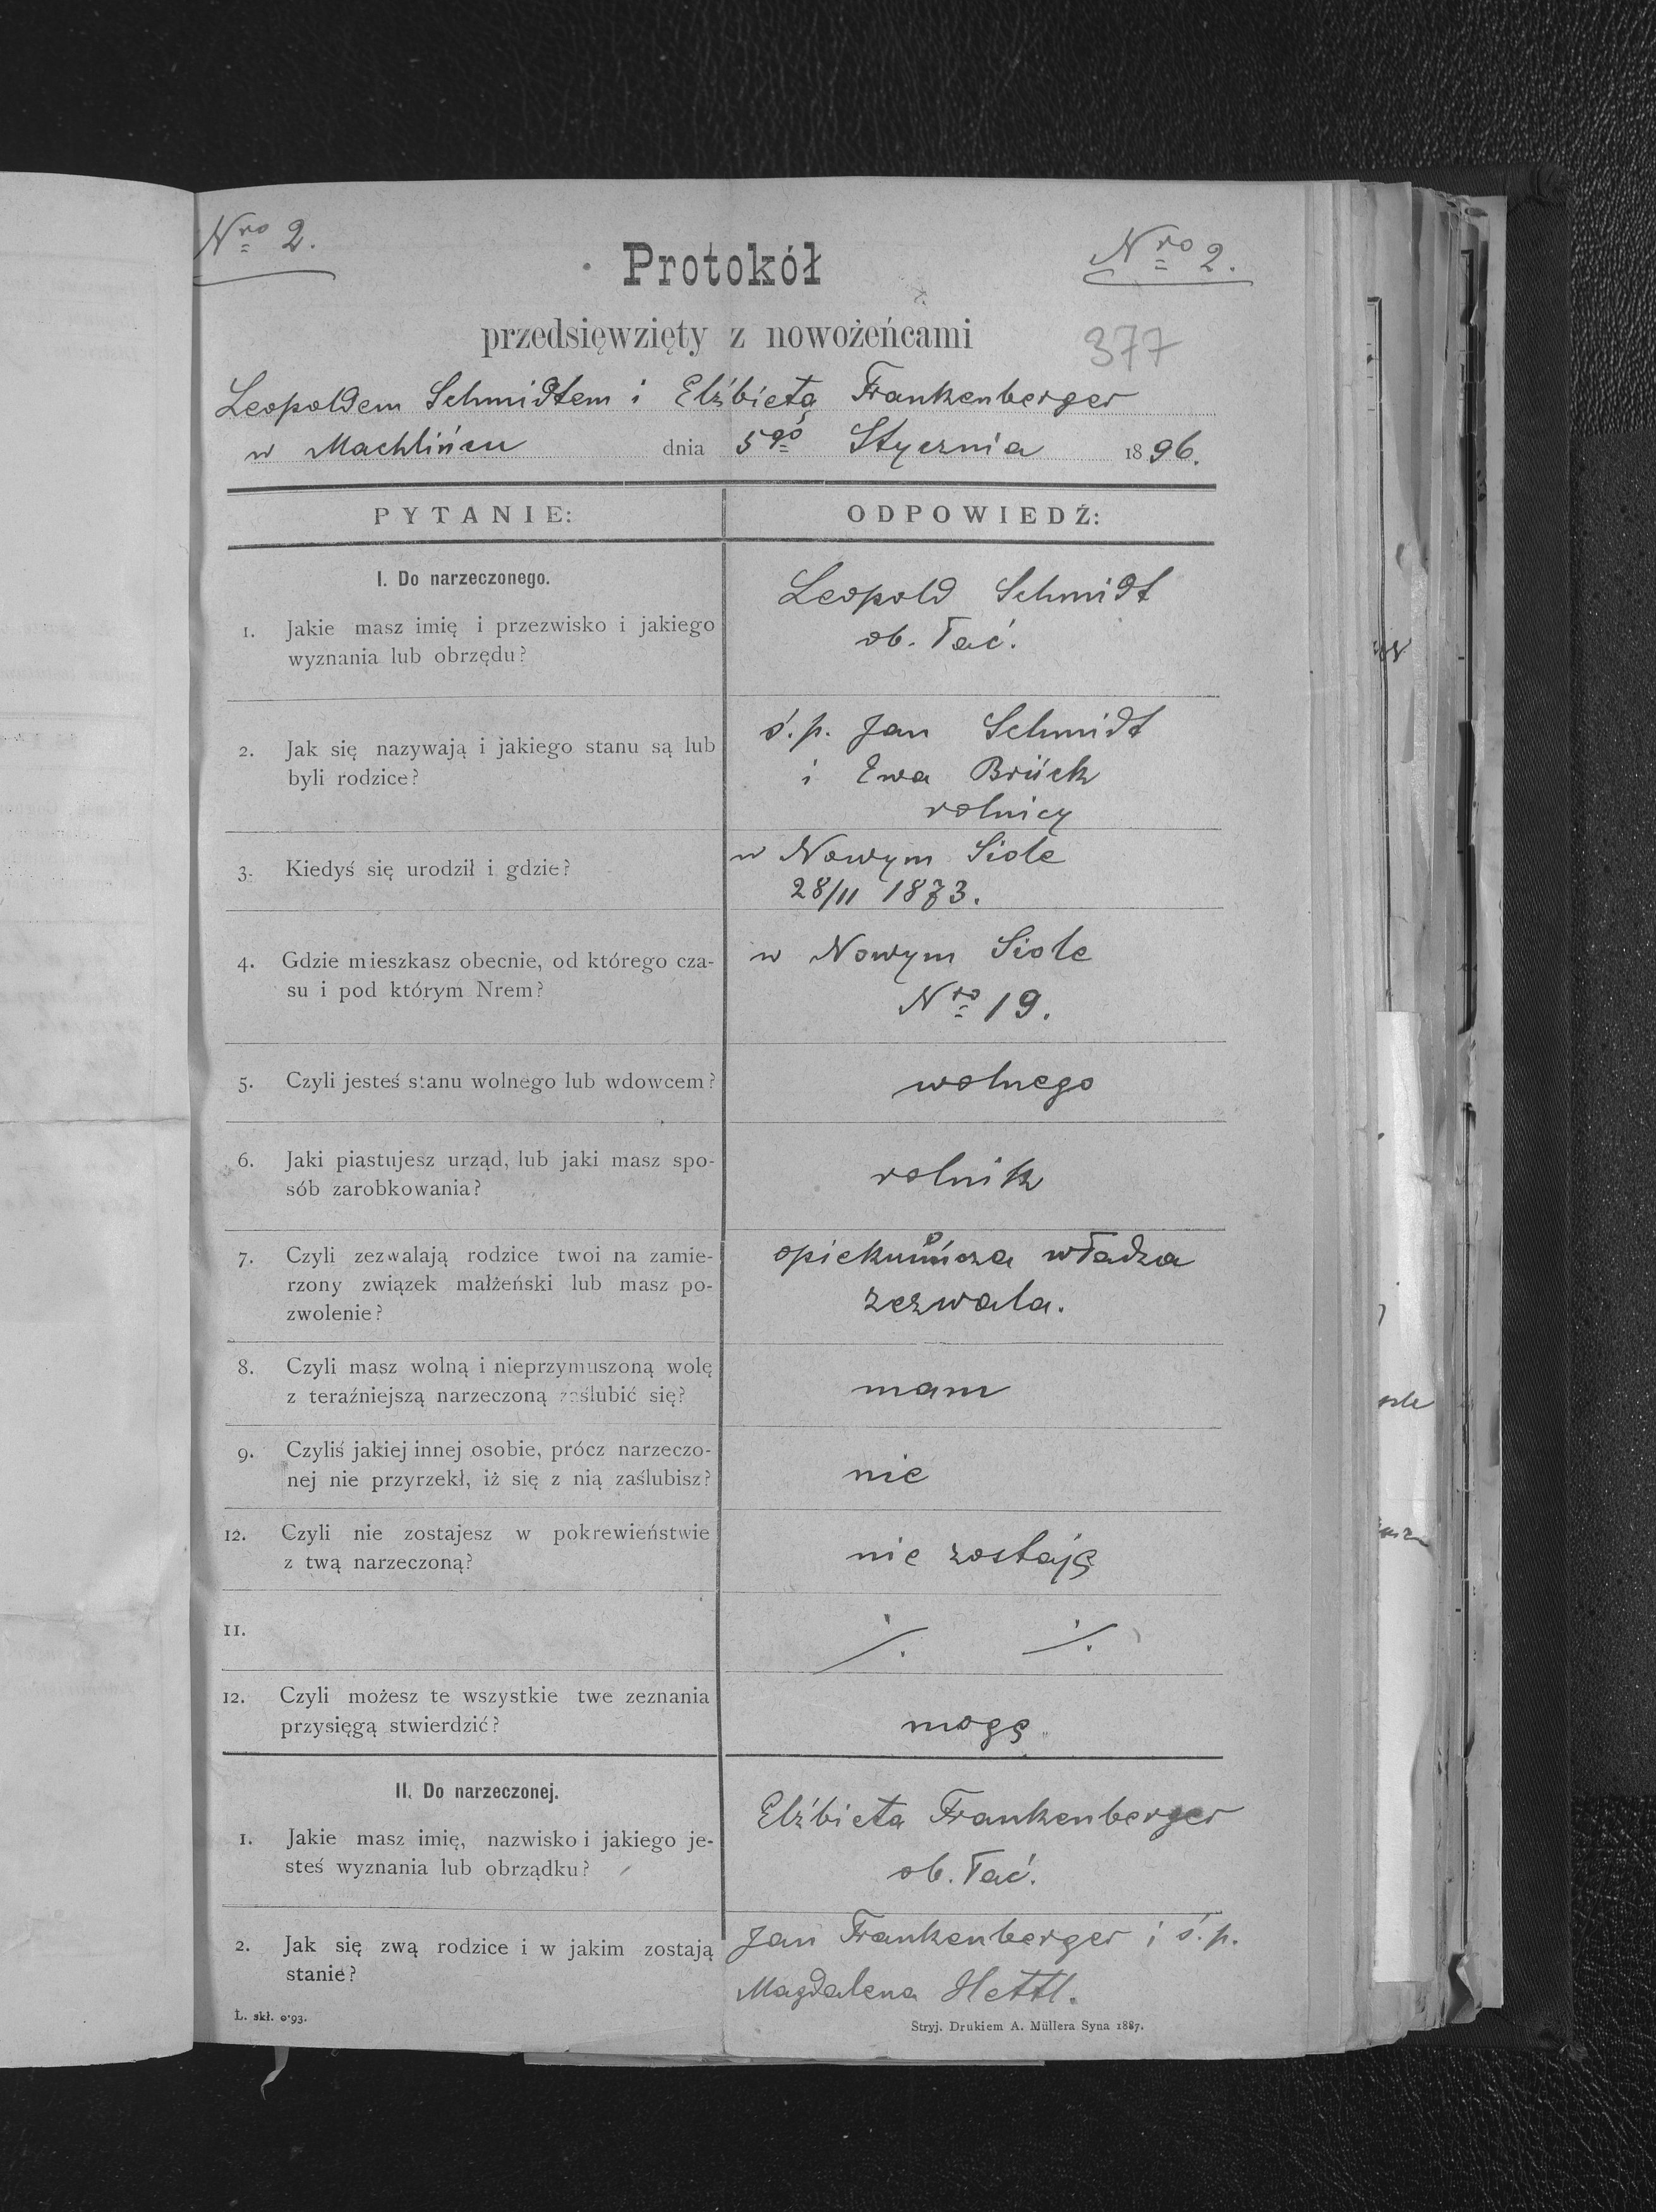 Nro 2.
Nro 2.
Protokół
przedsięwzięty z nowożeńcami
377
Leopoldem Schmidtem i Elżbietą Frankenberger
w Machlińcu dnia 5go Stycznia 1896.
PYTANIE:
ODPOWIEDŹ:
I. Do narzeczonego.
1. Jakie masz imię i przezwisko i jakiego
wyznania lub obrzędu?
Leopold Schmidt
ob. łać.
2. Jak się nazywają i jakiego stanu są lub
byli rodzice?
ś. p. Jan Schmidt
i Ewa Brück
rolnicy
3. Kiedyś się urodził i gdzie?
w Nowym Siole
28/11 1873.
4. Gdzie mieszkasz obecnie, od którego cza-
su i pod którym Nrem?
w Nowym Siole
Nro 19.
5. Czyli jesteś stanu wolnego lub wdowcem?
wolnego
6. Jaki piastujesz urząd, lub jaki masz spo-
sób zarobkowania?
rolnik
7. Czyli zezwalają rodzice twoi na zamie-
rzony związek małżeński lub masz po-
zwolenie?
opiekuńcza władza
zezwala.
8. Czyli masz wolną i nieprzymuszoną wolę
z teraźniejszą narzeczoną zaślubić się?
mam
9. Czyliś jakiej innej osobie, prócz narzeczo-
nej nie przyrzekł, iż się z nią zaślubisz?
nie
12. Czyli nie zostajesz w pokrewieństwie
z twą narzeczoną?
nie zostaję
11.
./. ./.
12. Czyli możesz te wszystkie twe zeznania
przysięgą stwierdzić?
mogę
II. Do narzeczonej.
1. Jakie masz imię, nazwisko i jakiego je-
steś wyznania lub obrządku?
Elżbieta Frankenberger
ob. łać.
2. Jak się zwą rodzice i w jakim zostają
stanie?
Jan Frankenberger i ś. p.
Magdalena Hettl.
L. skł. 0·93.
Stryj. Drukiem A. Müllera Syna 1887.